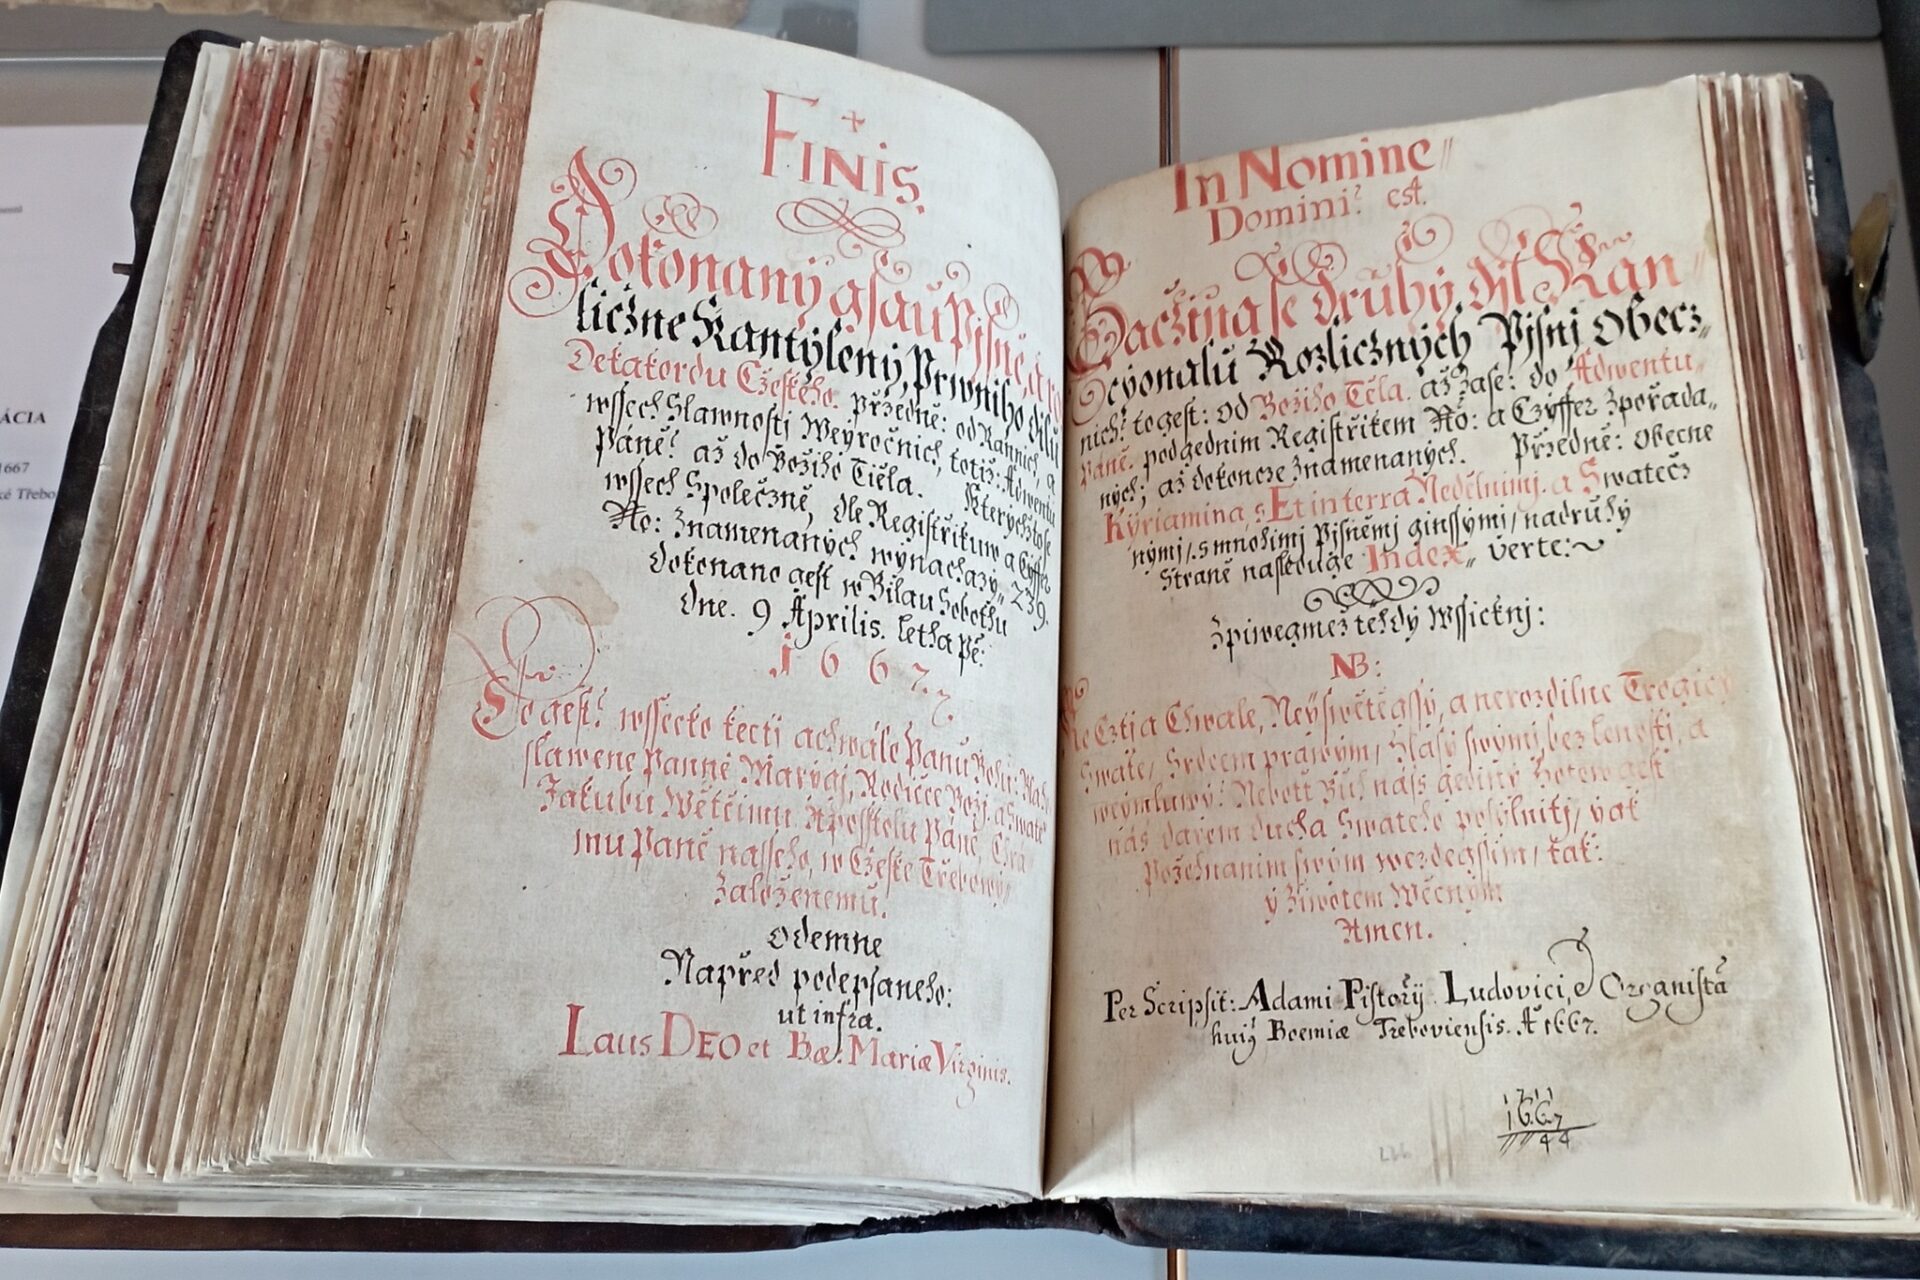 ÁCIA
1667
ké Třebo
Finis.
Dokonaný gsau Pjsně, a ro
ličzne Kantýlený, Prwniho dilu
Dekakordu Cžeského. Přzedně: od Rannich, a
wssech Slawnosti Weyročnich, totiž: Adwentu
Páně! až do Božiho Tiěla. Kterýchžto se
wssech Společzně, dle Registřikuw a Cyffer
No: Znamenaných wýnacházý, 239.
Dokonano gest w Bilau Sobothu
dne. 9 Aprilis. letha Pě:
1667.
To gest! wssecko kecti a chwále Panu Bohu: Bla
slawene Panně Marygi, Rodičce Boží. a Swate
Jakubu Wětčimu Aposstolu Páně, Chrá
mu Páně nasseho, w Cžeske Třebowý,
Založenemu.
Odemne
Napřed podepsaneho:
ut infra.
Laus DEO et Bæ: Mariæ Virginis.
In Nomine
Domini? est.
Začzina se druhý djl Kan
cyonalu Rozlicznych Pjsnj Obecz
nich: to gest: od Božiho Těla. až zase: do Adwentu
Páně. pod gednim Registřikem No: a Czyffer Zpořáda
ných; až dokoncze Znamenaných. Přzedně: Obecne
Kyriamina, s Et in terra Nedělnimj. a Swatecž
nymj, s mnohimj Pjsněmj ginssymi, na druhý
Straně nasleduge Index, verte:
Zpiwegmež tehdý wssickni:
NB:
Ke Cztj a Chwale, Neyswětěgssy, a nerozdilne Trogicy
Swate, Srdcem práwym, hlasy swými, bez lenosti, a
weymluwý! Nebott Bůh náss gediný hotow gest
nás darem ducha Swateho posylniti, yak
Požehnanim swým wezdegssim, tak:
ý Žiwotem Wěčným
Amen.
Per Scripsit: Adami Pistorÿ Ludovici, Organista
huiy Boemiæ Treboviensis. A 1667.
1711
1667
44